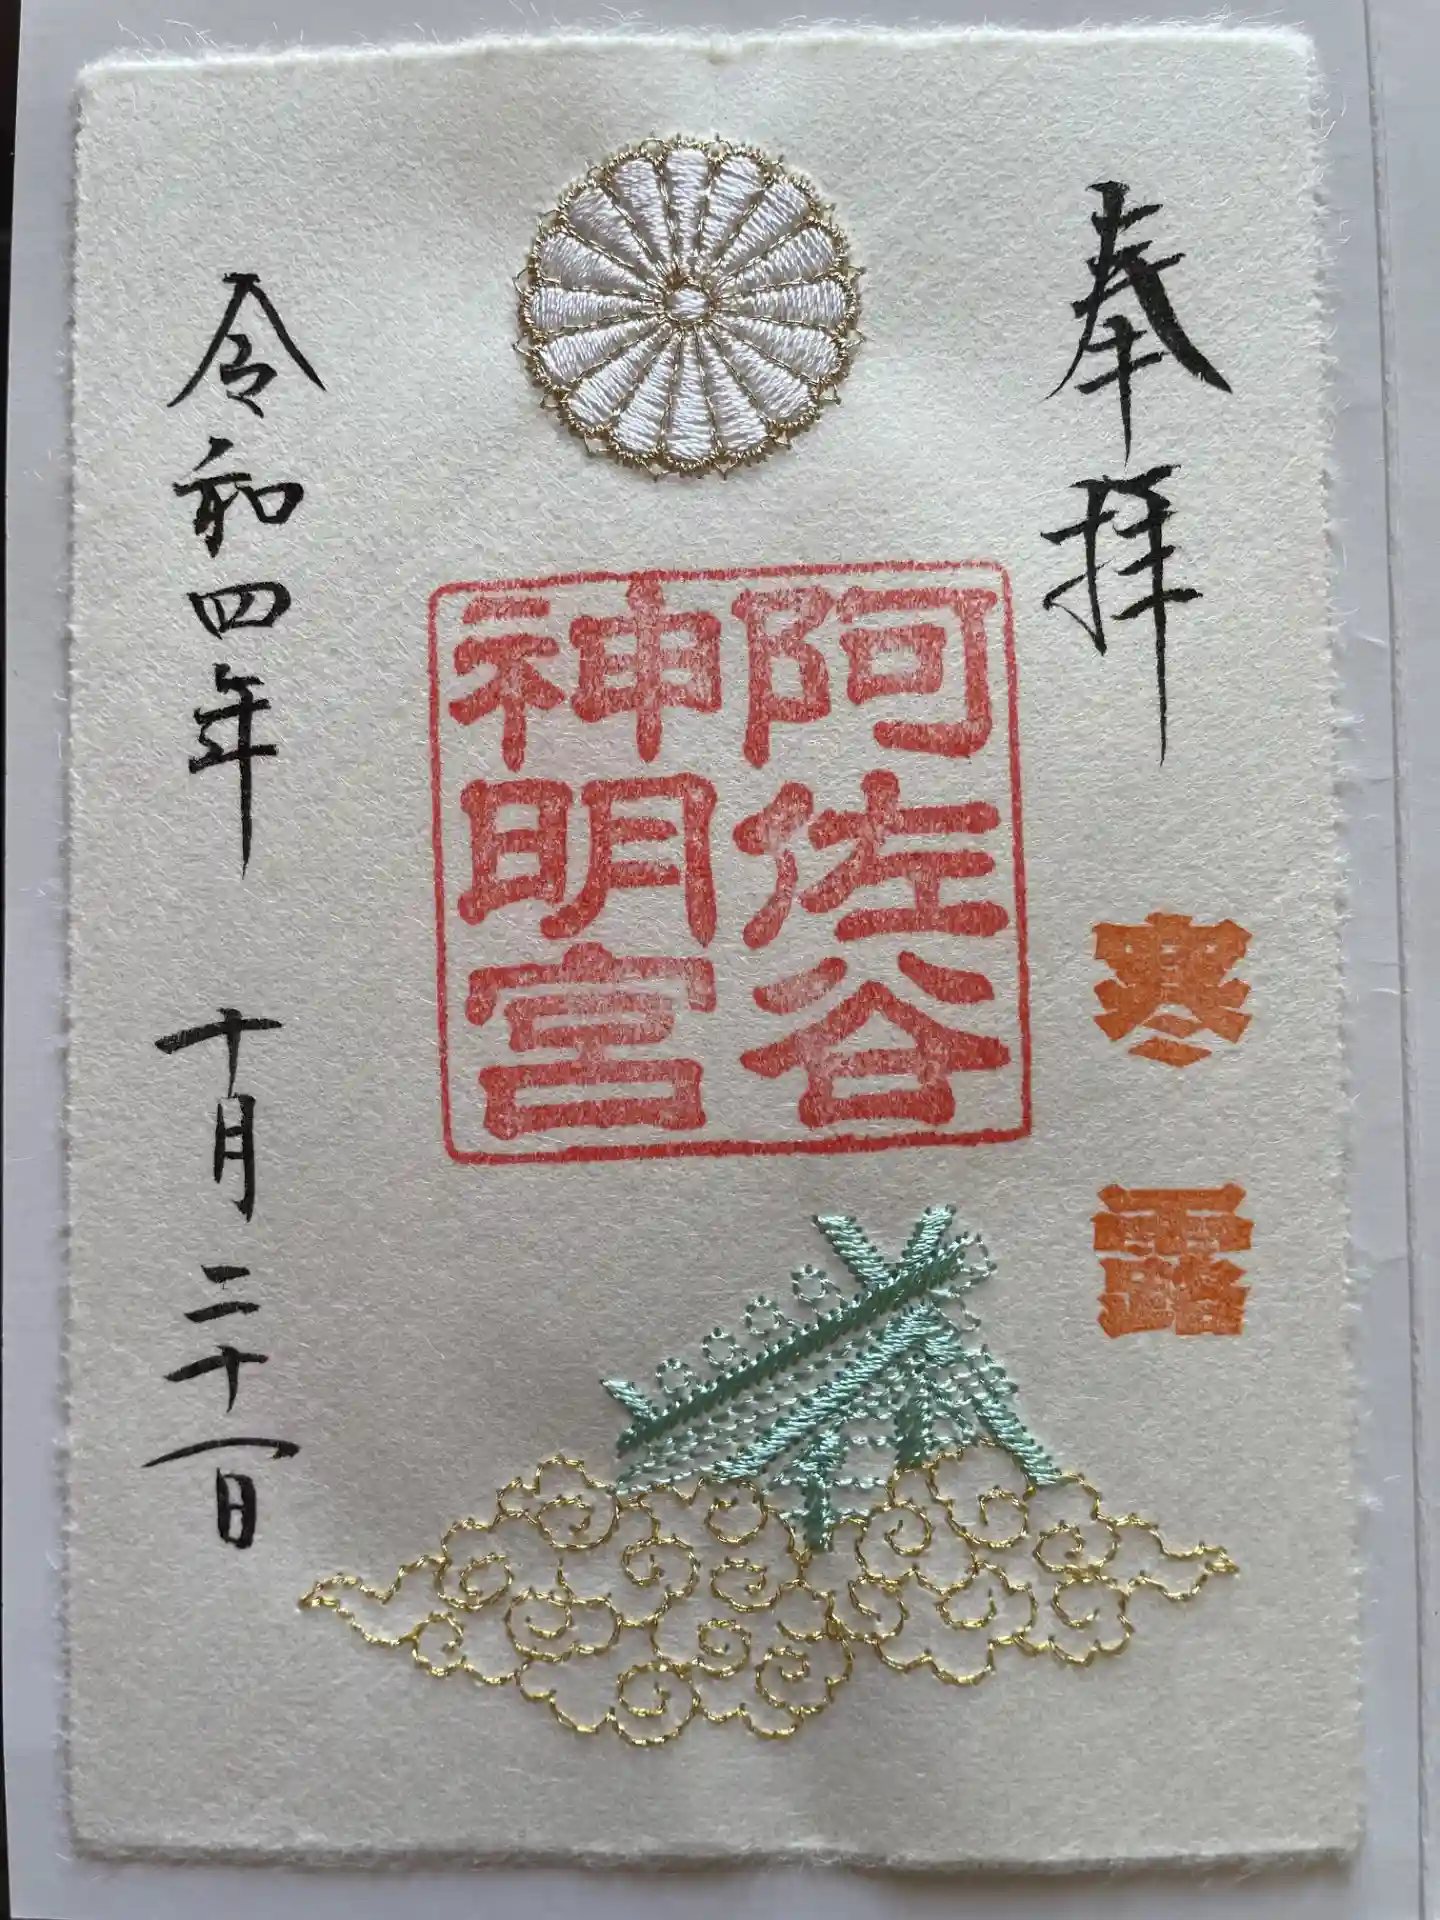 奉拝
寒露
阿佐谷
神明宮
令和四年 十月二十一日